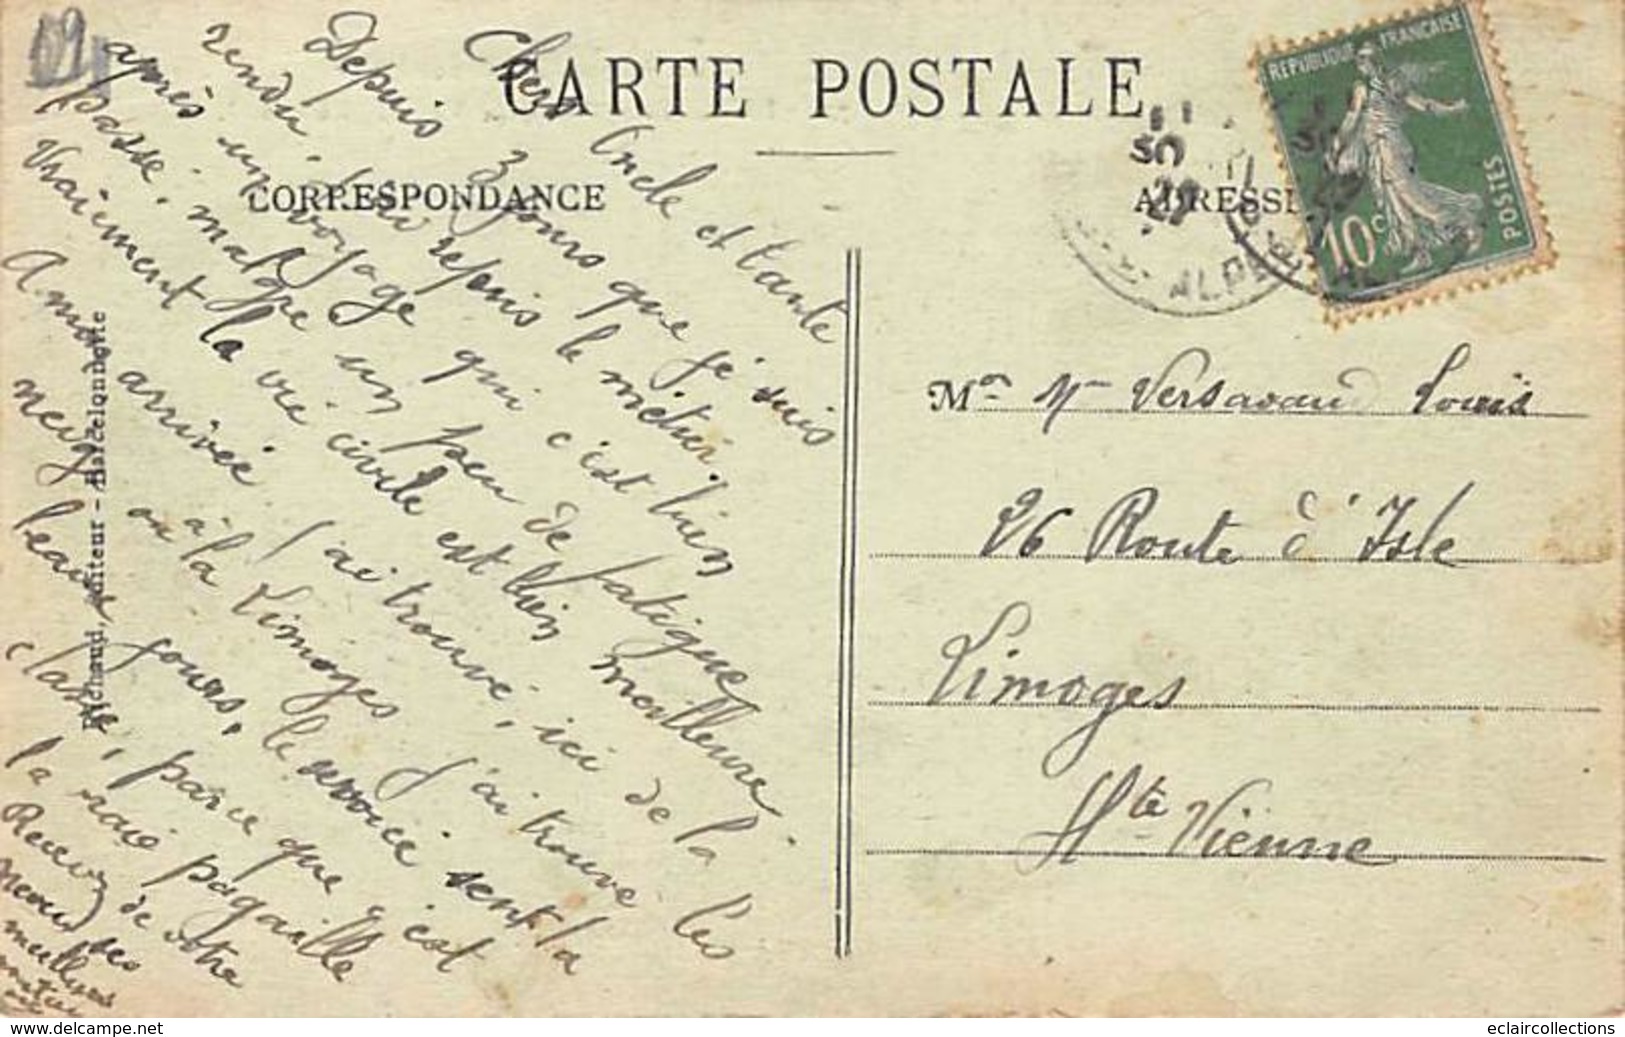 CARTE POSTALE
CORRESPONDANCE
ADRESSE
RÉPUBLIQUE FRANÇAISE
POSTES
10c
Chers Oncle et tante
Depuis 3 jours que je suis
rendu, j'ai repris le métier,
après un voyage qui c'est bien
passé, malgré un peu de fatigue
Vraiment la vie civile est bien meilleure,
A mon arrivée j'ai trouvé, ici de la
neige où à la Limoges j'ai trouvé les
beaux jours, le service sent la
classe, parce que c'est
la vraie pagaille
Recevez de votre
neveu ses
meilleures
Mr Versavaud Louis
26 Route d'Isle
Limoges
Hte Vienne
www.delcampe.net
eclaircollections